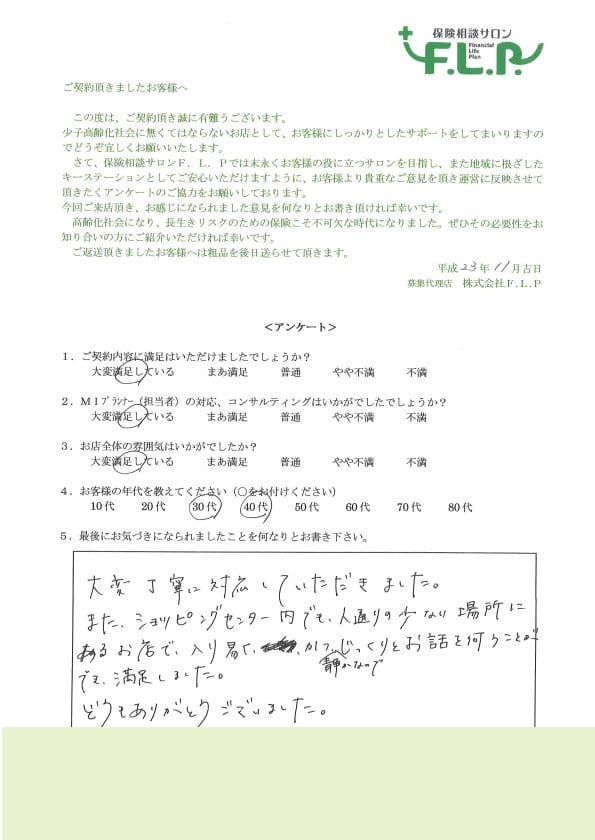 保険相談サロン
F.L.P.
Financial
Life
Plan
ご契約頂きましたお客様へ
この度は、ご契約頂き誠に有難うございます。
少子高齢化社会に無くてはならないお店として、お客様にしっかりとしたサポートをしてまいりますの
でどうぞ宜しくお願いいたします。
さて、保険相談サロンF．L．Pでは末永くお客様の役に立つサロンを目指し、また地域に根ざした
キーステーションとしてご安心いただけますように、お客様より貴重なご意見を頂き運営に反映させて
頂きたくアンケートのご協力をお願いしております。
今回ご来店頂き、お感じになられました意見を何なりとお書き頂ければ幸いです。
高齢化社会になり、長生きリスクのための保険こそ不可欠な時代になりました。ぜひその必要性をお
知り合いの方にご紹介いただければ幸いです。
ご返送頂きましたお客様へは粗品を後日送らせて頂きます。
平成23年11月吉日
募集代理店 株式会社F.L.P
＜アンケート＞
1．ご契約内容に満足はいただけましたでしょうか？
大変満足している まあ満足 普通 やや不満 不満
2．MIプランナー（担当者）の対応、コンサルティングはいかがでしたでしょうか？
大変満足している まあ満足 普通 やや不満 不満
3．お店全体の雰囲気はいかがでしたか？
大変満足している まあ満足 普通 やや不満 不満
4．お客様の年代を教えてください（○をお付けください）
10代 20代 30代 40代 50代 60代 70代 80代
5．最後にお気づきになられましたことを何なりとお書き下さい。
大変丁寧に対応していただきました。
また、ショッピングセンター内でも、人通りの少ない場所に
あるお店で、入り易く、かつ、じっくりとお話を伺うことが
静かなので
でき、満足しました。
どうもありがとうございました。